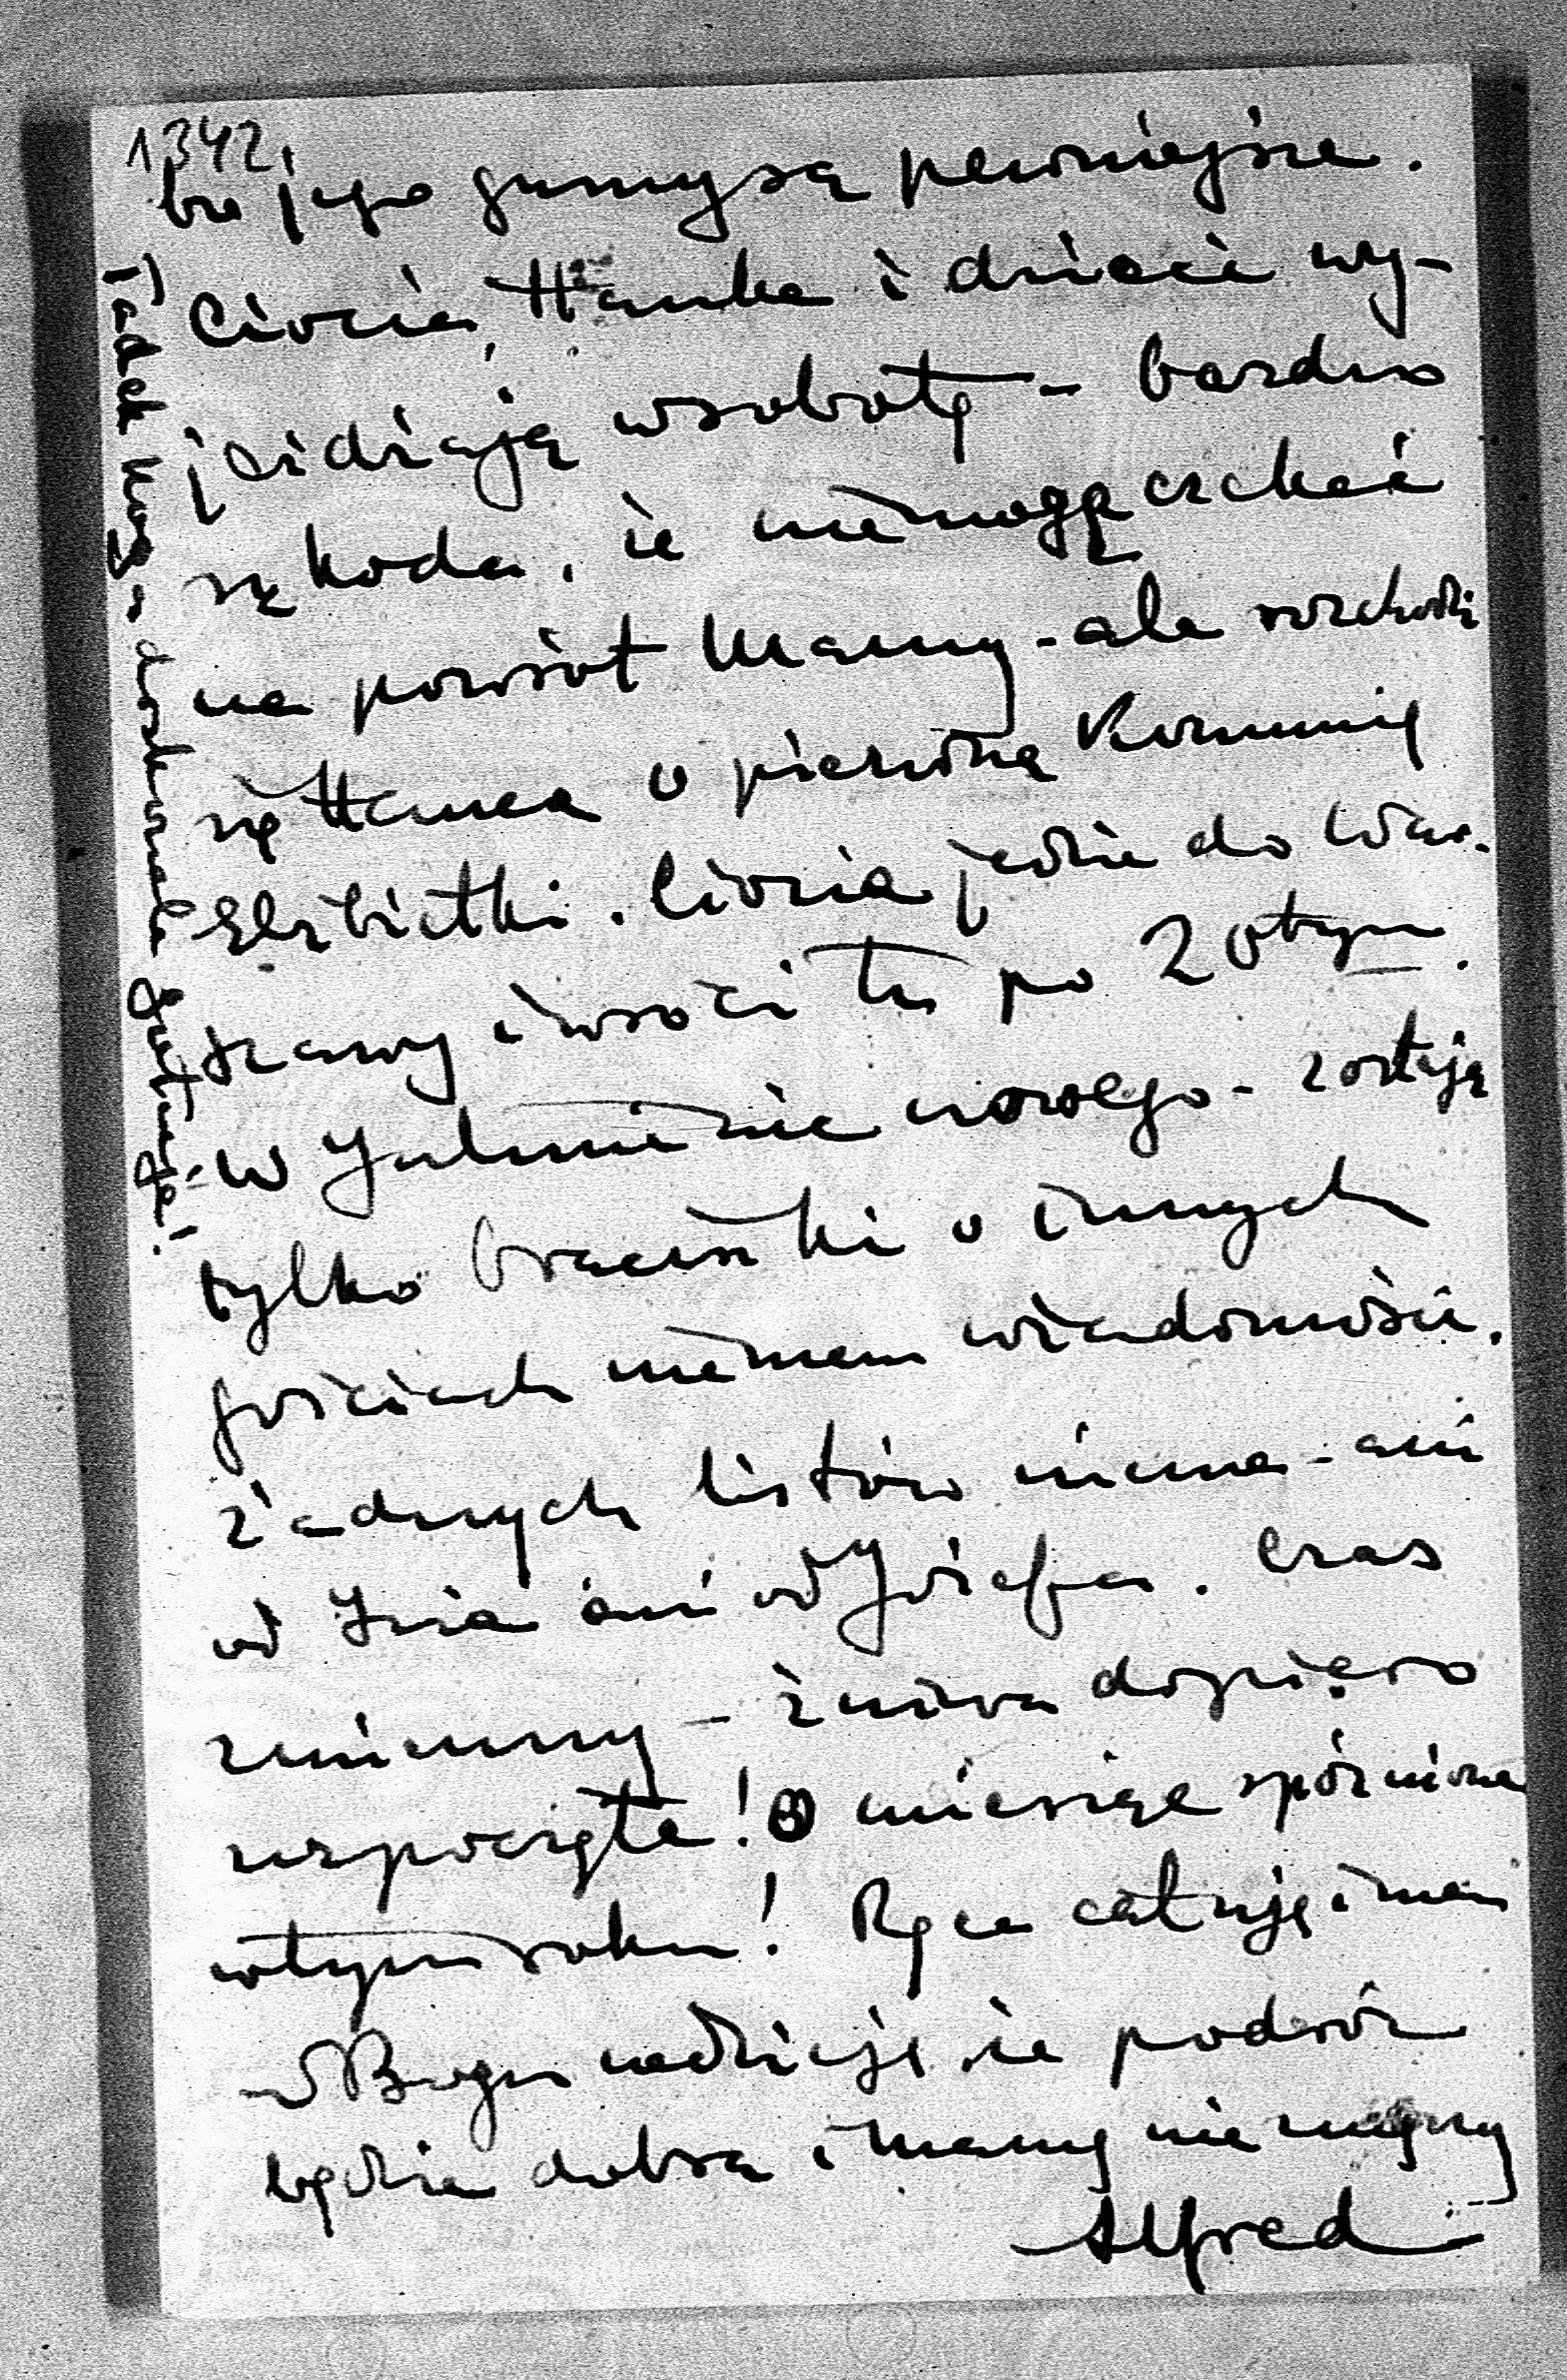 1342
bo jego gumy są pewniejsze.
Ciocia, Hanka i dzieci wy-
jeżdżają w sobotę – bardzo
szkoda, że nie mogą czekać
na powrót Mamy – ale rozchodzi
się Hance o pierwszą Komunię
Elżbietki. Ciocia jedzie do War-
szawy i wróci tu po 20tym.
W Julinie nic nowego – zostają
tylko o innych
gościach nie mam wiadomości.
Żadnych listów niema – ani
od ani od Józefa. Czas
zmienny – żniwa dopiero
rozpoczęte! O miesiąc spóźnione
w tym roku! Ręce całuję i mam
w Bogu nadzieję, że podróż
będzie dobra i Mamy nie zmęczy
Alfred
Tadek doskonale